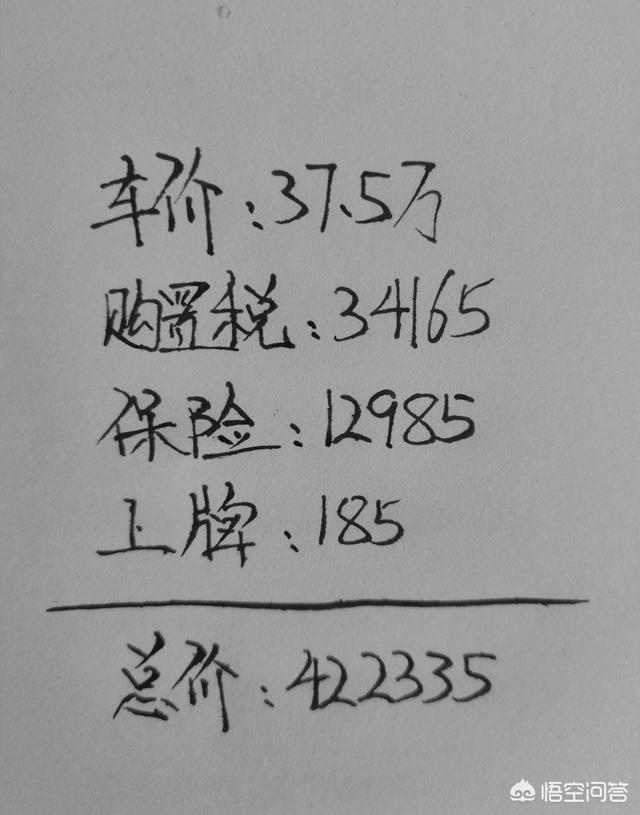 车价:37.5万
购置税:34165
保险:12985
上牌:185
总价:422335
悟空问答